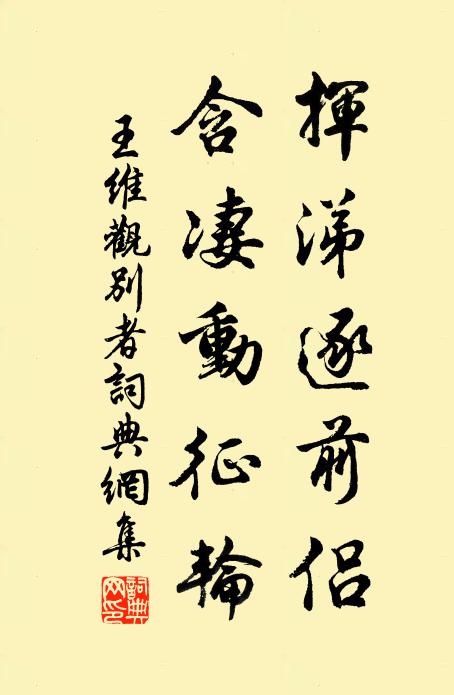 揮涕逐前侶
含凄動征輪
王維觀別者詞典網集
詞典網印